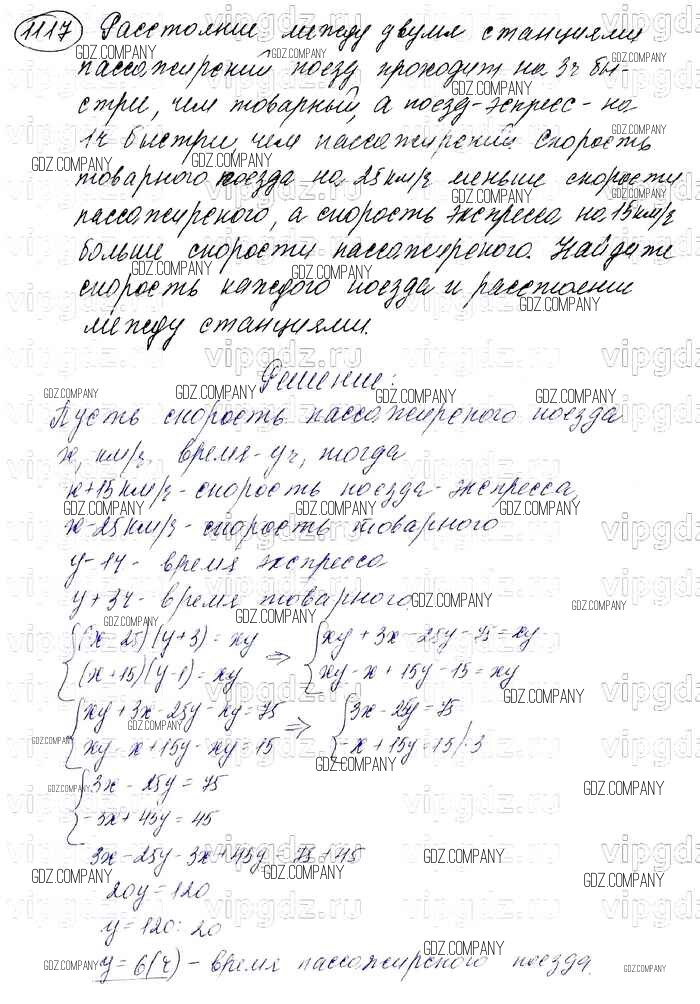 1117 Расстояние между двумя станциями
пассажирский поезд проходит на 3ч бы-
стрее, чем товарный, а поезд-эспресс - на
1ч быстрее, чем пассажирский. Скорость
товарного поезда на 25 км/ч меньше скорости
пассажирского, а скорость экспресса на 15 км/ч
больше скорости пассажирского. Найдите
скорость каждого поезда и расстояние
между станциями.
Решение:
Пусть скорость пассажирского поезда
х, км/ч, время - y ч, тогда
х+15 км/ч - скорость поезда-экспресса,
х-25 км/ч - скорость товарного
y-1ч - время экспресса
y+3ч - время товарного
{(x-25)(y+3)=xy => {xy+3x-25y-75=xy
{(x+15)(y-1)=xy {xy-x+15y-15=xy
{xy+3x-25y-xy=75 => {3x-25y=75
{xy-x+15y-xy=15 {-x+15y=15/·3
{3x-25y=75
{-3x+45y=45
3x-25y-3x+45y=75+45
20y=120
y=120:20
y=6(ч) - время пассажирского поезда.
GDZ.COMPANY
vipgdz.ru